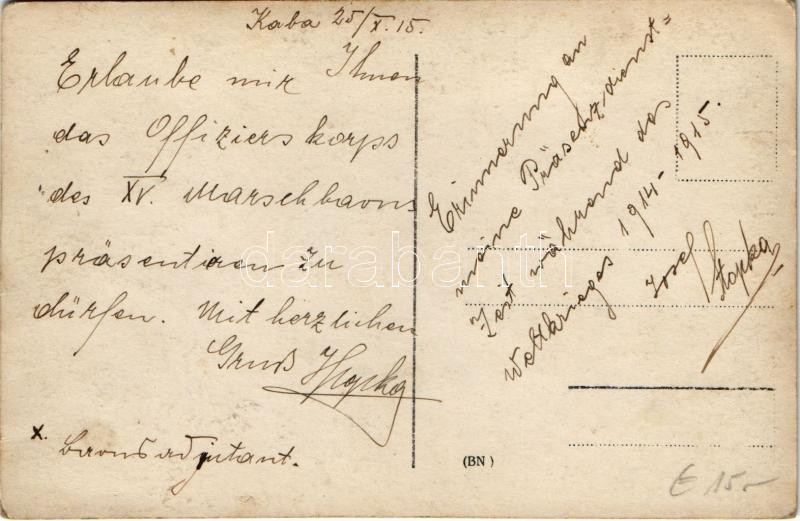 Kaba 25/X. 15.
Erlaube mir Ihnen
das Offizierskorps
des XV. Marschbaons
präsentieren zu
dürfen. Mit herzlichen
Gruß JStopka
x. baonsadjutant.
Erinnerung an
meine Präsenzdienst=
Zeit während des
Weltkrieges 1914-1915.
Josef Stopka
(BN)
€ 15.-
darabanth